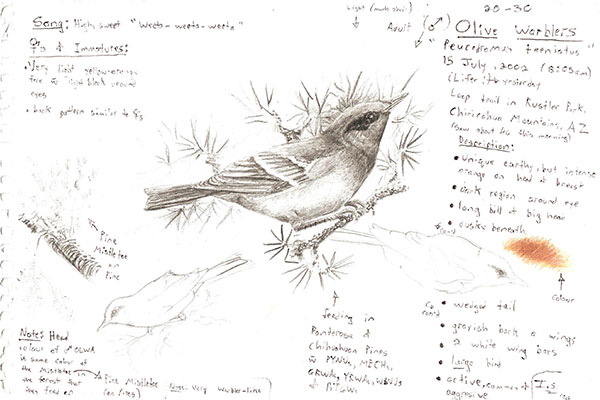 Song: High, sweet "Weets-weets-weets"
♀s & Immatures:
• Very light yellow-orange
face & light black around
eyes
• back pattern similar to ♂'s
Adult (♂)
Olive Warblers
"Peucedramus taeniatus"
15 July, 2002 (8:05am)
(Lifer yesterday
Loop trail in Rustler Park,
Chiricahua Mountains, AZ
(saw about 46 this morning)
Description:
• Unique earthy, but intense
orange on head & breast
• dark region around eye
• long bill & big head
• dusky beneath
colour
• wedged tail
• grayish back & wings
• 2 white wing bars
• Large bird
• active, common &
aggresive
Pine
Mistletoe
on
Pine
feeding in
Ponderosa &
Chihuahuan Pines
w PYNU, MECH,
GRWA,
Note: Head
colour of ♂ OLWA
is same colour of
the Mistletoe in
the forest that
they feed on
Pine Mistletoe
(on limbs)
Note: Very Warbler-like